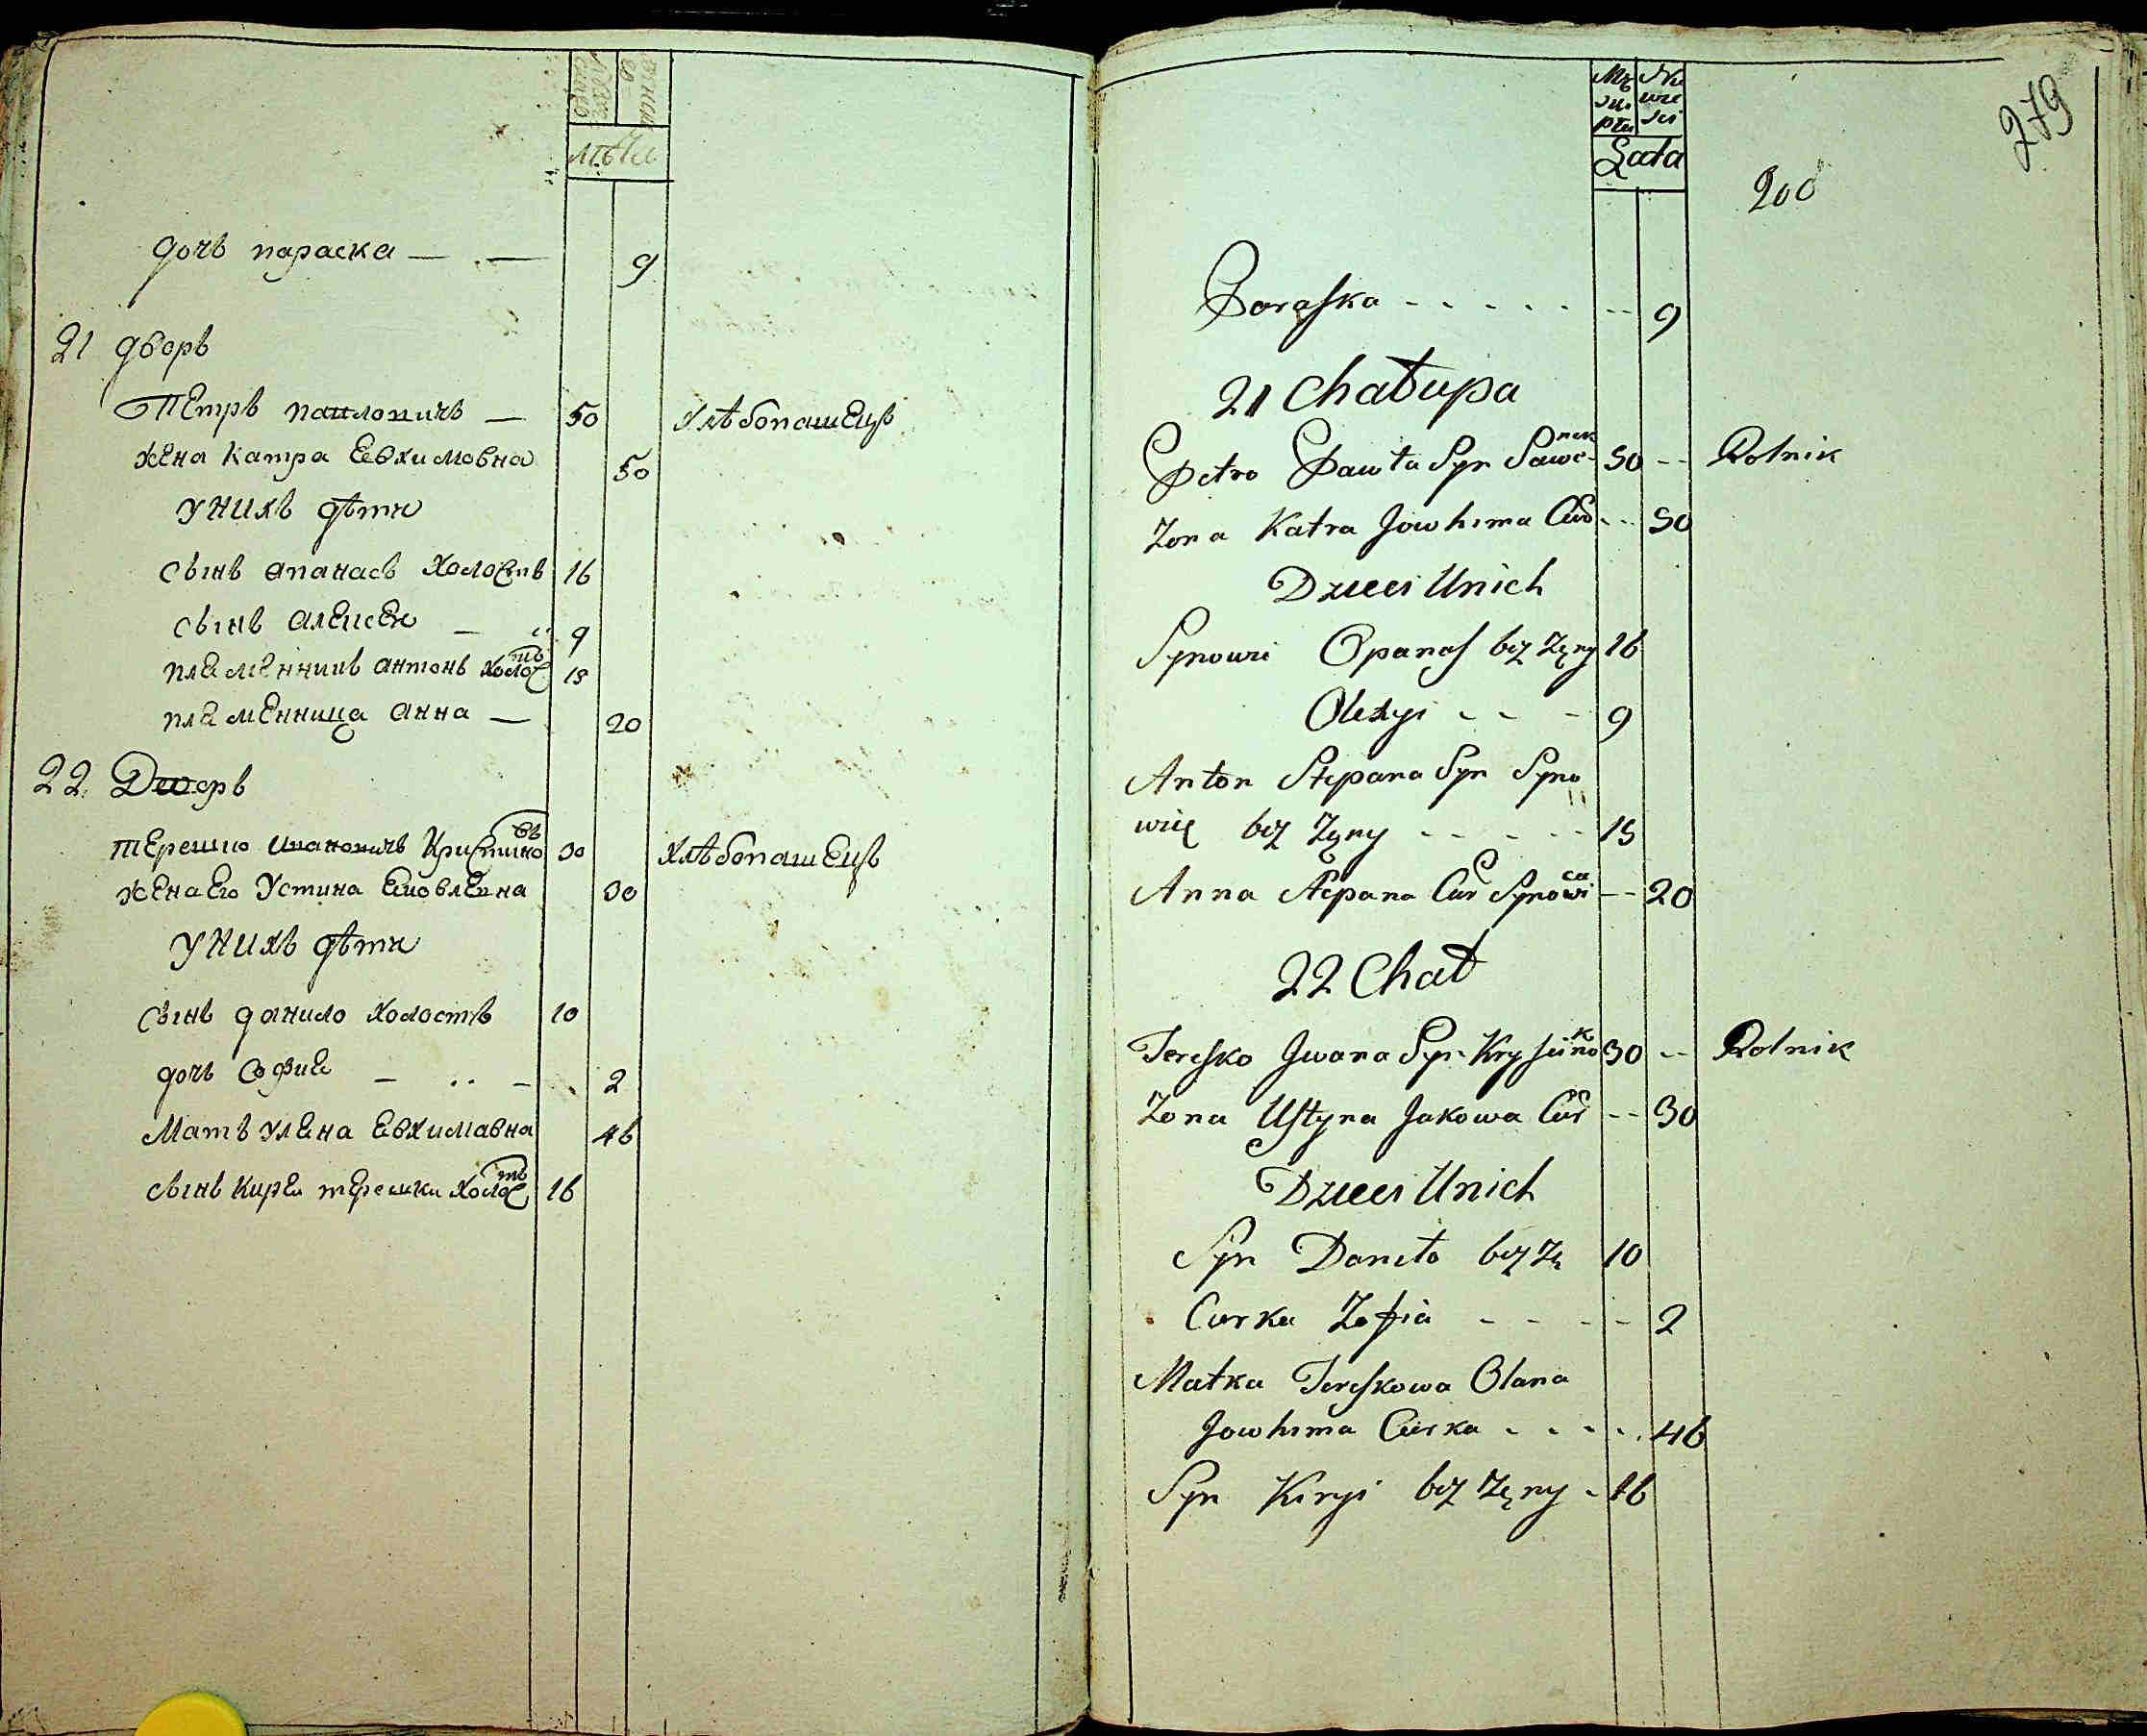 лѣта
дочь параска — . — 9
21 дворъ
Петръ павловичъ — 50 хлѣбопашецъ
жена катра Евхимовна 50
У нихъ дѣти
сынъ апанасъ холостъ 16
сынъ алексей — 9
племенникъ антонъ холостъ 15
племенница анна — 20
22. Дворъ
терешко ивановичъ Кристиновъ 30 хлѣбопашецъ
жена его Устина Яковлевна 30
У нихъ дѣти
сынъ данило холостъ 10
дочь София — .. — 2
Мать улена Евхимавна 46
сынъ Кирей терешки холостъ 16
279
Męż Nie
wie
płci ści
Lata
200
Paraska - - - - - -- 9
21 Chałupa
Petro Pawła Syn Sawenek 50 -- Rolnik
Zona Katra Jowhima Cur - -- 50
Dzieci Unich
Synowie Opanas bez Zęny 16
Olexyi - - - 9
Anton Stepana Syn Syno
wiec bez Zęny - - - - - 15
Anna Stepana Cur Synowica -- 20
22 Chał
Teresko Jwana Syn Kryscinok 30 -- Rolnik
Zona Ustyna Jakowa Cur -- 30
Dzieci Unich
Syn Daniło bez Zę 10
Curka Zofia - - - - 2
Matka Tereskowa Olana
Jowhima Curka - - - - . 46
Syn Kiryi bez Zęny - 16